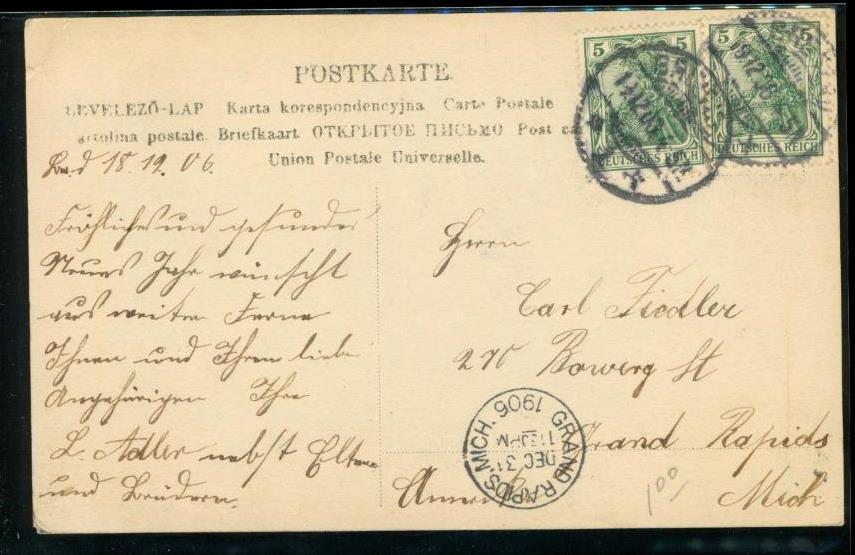 POSTKARTE.
LEVELEZŐ-LAP Karta korespondencyjna Carte Postale
artolina postale. Briefkaart ОТКРЫТОЕ ПИСЬМО Post ca
Union Postale Universelle.
5 5
5 5
DEUTSCHES REICH
DEUTSCHES REICH
18.12.06.
Fröhliches und gesundes
Neues Jahr wünscht
aus weiter Ferne
Ihnen und Ihren liebe
Angehörigen Ihr
L. Adler nebst Eltern
und Brüdern.
Herrn
Carl Fiedler
270 Bowerg St
Grand Rapids
Mich
GRAND RAPIDS, MICH. 1906
DEC 31
1130PM
100